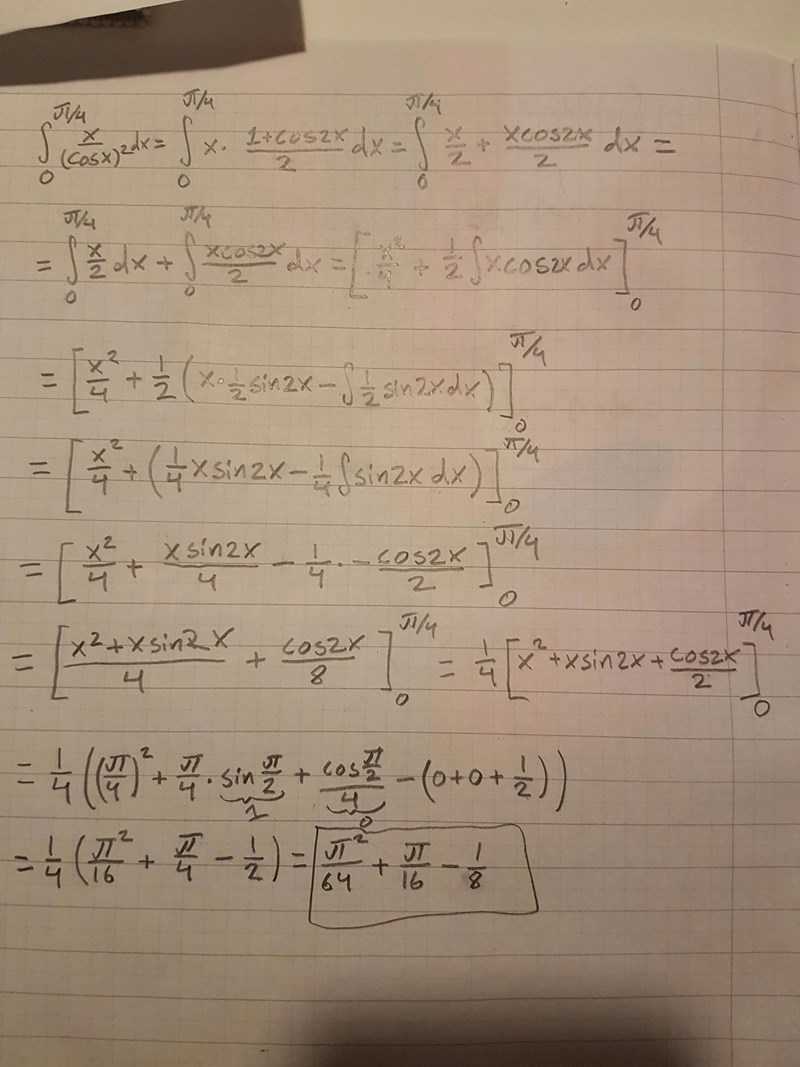 ∫₀^{π/4} x/(cosx)² dx = ∫₀^{π/4} x · (1+cos2x)/2 dx = ∫₀^{π/4} x/2 + xcos2x/2 dx =
= ∫₀^{π/4} x/2 dx + ∫₀^{π/4} xcos2x/2 dx = [x²/4 + 1/2 ∫xcos2x dx]₀^{π/4}
= [x²/4 + 1/2 (x · 1/2 sin2x − ∫ 1/2 sin2x dx)]₀^{π/4}
= [x²/4 + (1/4 x sin2x − 1/4 ∫ sin2x dx)]₀^{π/4}
= [x²/4 + x sin2x/4 − 1/4 · − cos2x/2]₀^{π/4}
= [(x² + x sin2x)/4 + cos2x/8]₀^{π/4} = 1/4 [x² + x sin2x + cos2x/2]₀^{π/4}
= 1/4 ((π/4)² + π/4 · sin π/2 + (cos π/2)/4 − (0+0+1/2))
1 0
= 1/4 (π²/16 + π/4 − 1/2) = π²/64 + π/16 − 1/8